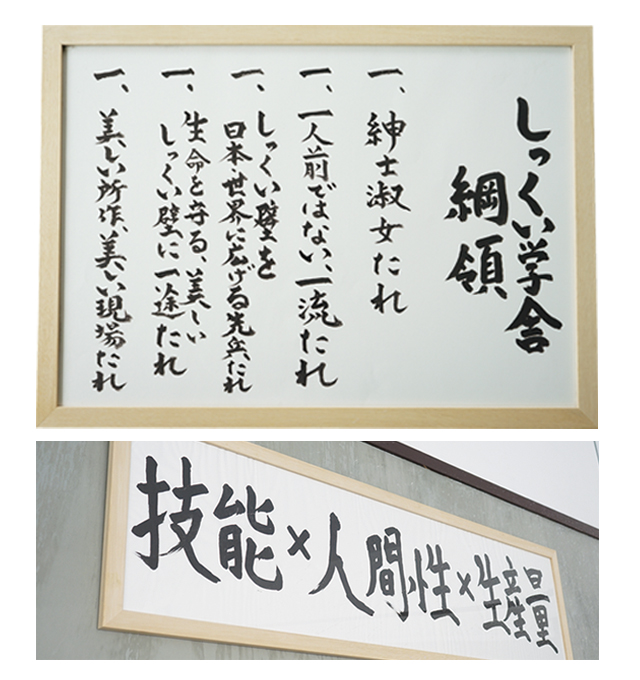 しっくい学舎
綱領
一、紳士淑女たれ
一、一人前ではない、一流たれ
一、しっくい壁を
日本・世界に広げる先兵たれ
一、生命を守る、美しい
しっくい壁に一途たれ
一、美しい所作、美しい現場たれ
技能×人間性×生産量